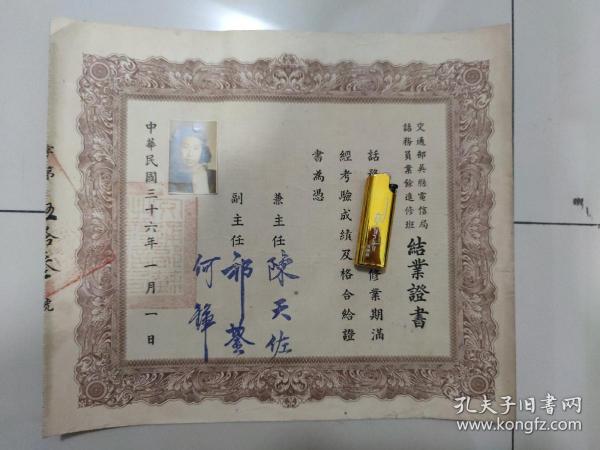 交通部吳縣電信局
話務員業餘進修班
結業證書
話務
修業期滿
經考驗成績及格合給證
書為憑
兼主任 陳天佐
副主任
何
中華民國三十六年一月一日
字第
伍拾叁
號
孔夫子旧书网
www.kongfz.com